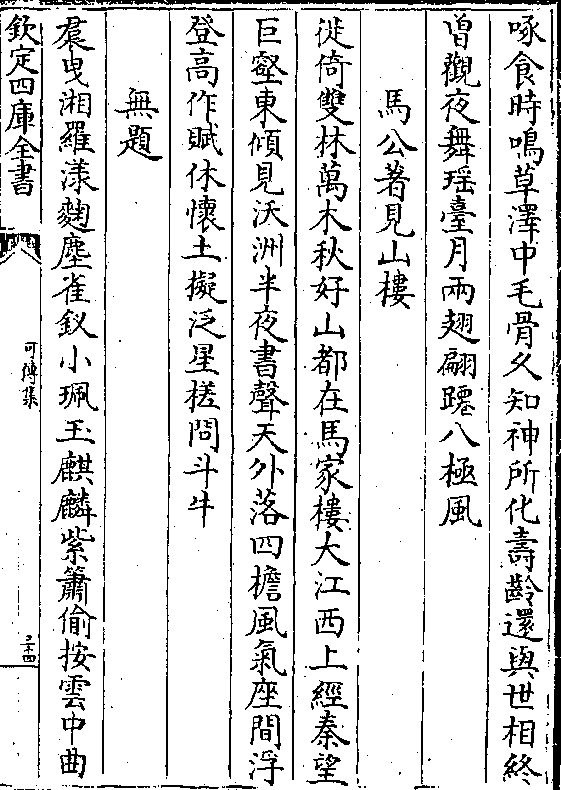 啄食時鳴草澤中毛骨久知神所化壽齡還與世相終
曽觀夜舞瑶臺月兩翅翩躚八極風
馬公著見山樓
徙倚雙林萬木秋好山都在馬家樓大江西上經秦望
巨壑東傾見沃洲半夜書聲天外落四檐風氣座間浮
登高作賦休懷土擬泛星槎問斗牛
無題
裙曳湘羅漾麴塵雀釵小珮玉麒麟紫簫偷按雲中曲
欽定四庫全書
可傳集
三十四